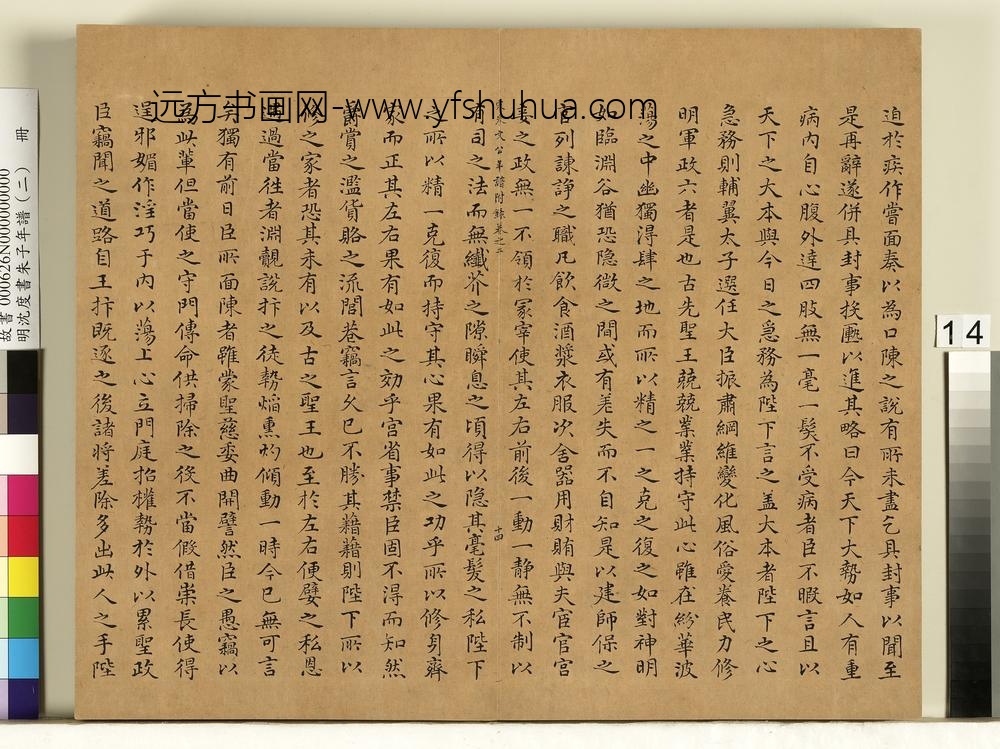 迫於疾作嘗面奏以為口陳之說有所未盡乞具封事以聞至
是再辭遂併具封事投匭以進其略曰今天下大勢如人有重
病內自心腹外達四肢無一毫一髮不受病者臣不暇言且以
天下之大本與今日之急務為陛下言之蓋大本者陛下之心
急務則輔翼太子選任大臣振肅綱維變化風俗愛養民力修
明軍政六者是也古先聖王兢兢業業持守此心雖在紛華波
蕩之中幽獨淂肆之地而所以精之一之克之復之如對神明
如臨淵谷猶恐隱微之間或有差失而不自知是以建師保之
官列諫諍之職凡飲食酒漿衣服次舍器用財賄與夫宦官宮
妾之政無一不領於冢宰使其左右前後一動一靜無不制以
朱文公年譜附錄卷之下
十四
有司之法而無纖芥之隙瞬息之頃得以隱其毫髮之私陛下
之所以精一克復而持守其心果有如此之功乎所以修身齊
家而正其左右果有如此之効乎宮省事禁臣固不得而知然
爵賞之濫貨賂之流閭巷竊言久已不勝其藉藉則陛下所以
修之家者恐其未有以及古之聖王也至於左右便嬖之私恩
遇過當往者淵覿說抃之徒勢焰熏灼傾動一時今已無可言
矣獨有前日臣所面陳者雖蒙聖慈委曲開譬然臣之愚竊以
為此輩但當使之守門傳命供掃除之役不當假借崇長使得
逞邪媚作淫巧于內以蕩上心立門庭招權勢於外以累聖政
臣竊聞之道路自王抃既逐之後諸將差除多出此人之手陛
远方书画网-www.yfshuhua.com
故書 000626N000000000
明沈度書朱子年譜(二) 冊
14